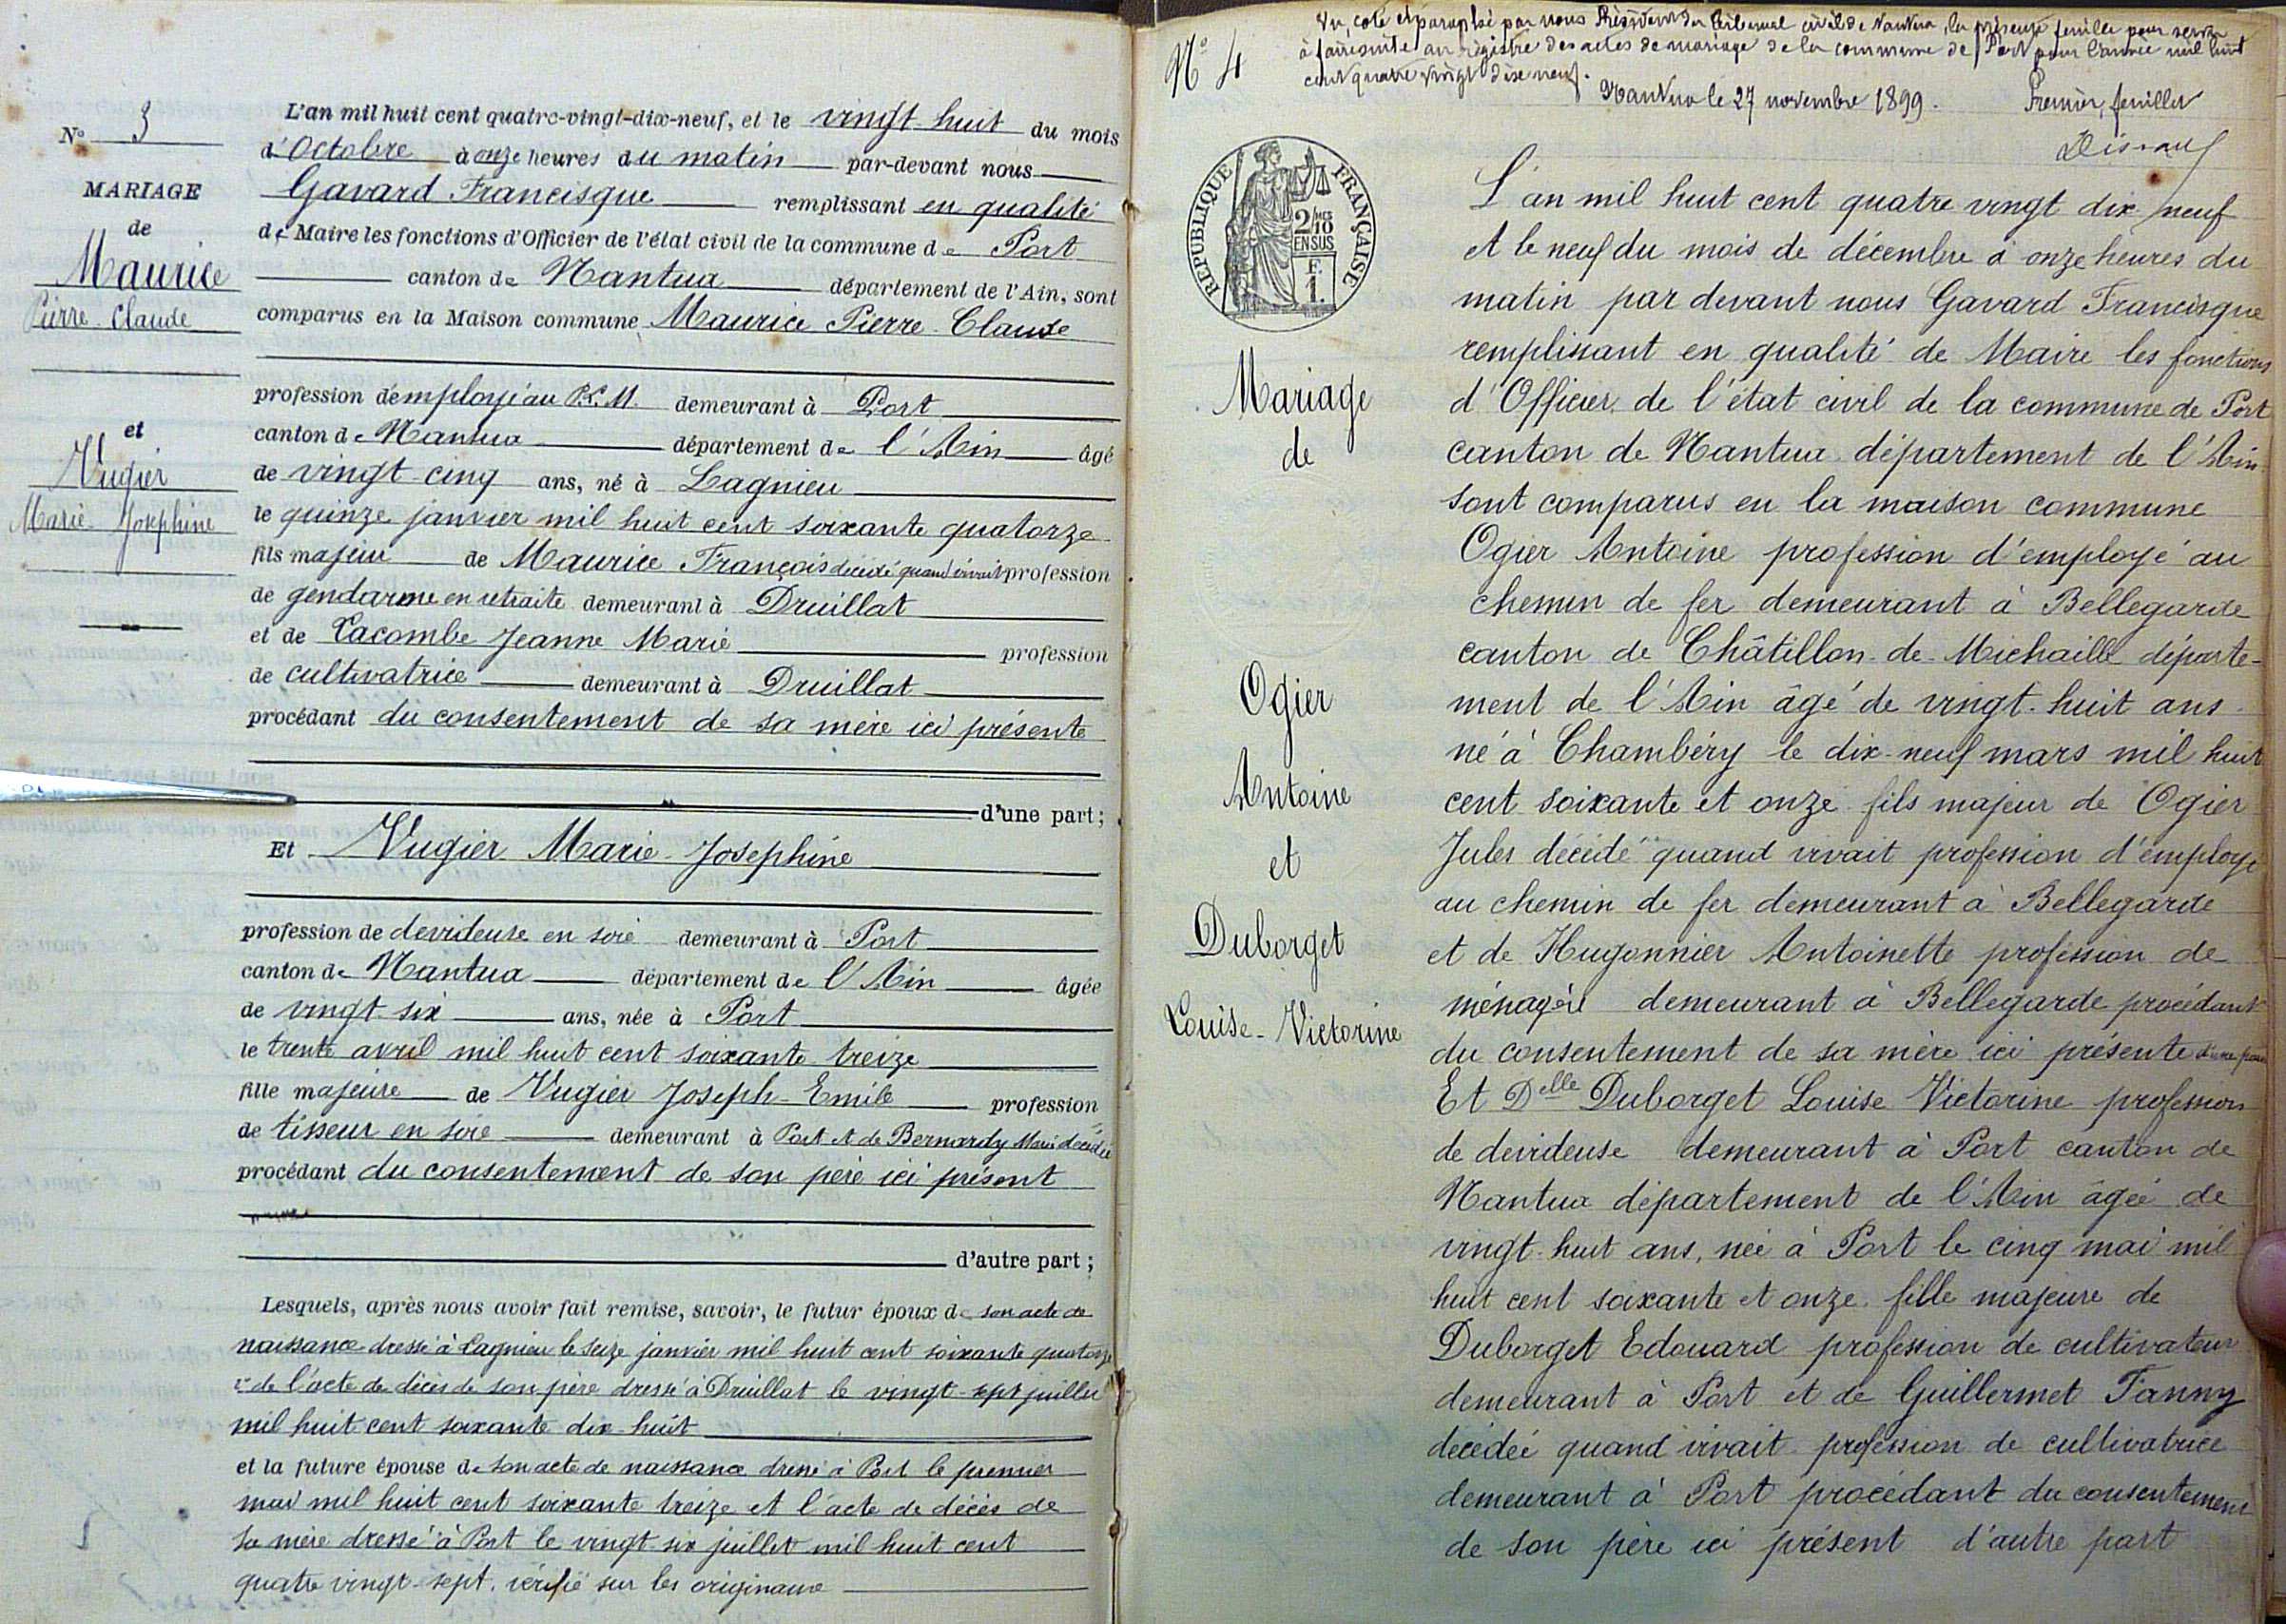 N° 3
MARIAGE
de
Maurice
Pierre Claude
et
Vugier
Marie Josephine
L'an mil huit cent quatre-vingt-dix-neuf, et le vingt huit du mois
d'Octobre à onze heures du matin par-devant nous
Gavard Francisque remplissant en qualité
de Maire les fonctions d'Officier de l'état civil de la commune de Port
canton de Nantua département de l'Ain, sont
comparus en la Maison commune Maurice Pierre Claude
profession d'employé au P.L.M. demeurant à Port
canton de Nantua département de l'Ain âgé
de vingt cinq ans, né à Lagnieu
le quinze janvier mil huit cent soixante quatorze
fils majeur de Maurice François décédé quand vivait profession
de gendarme en retraite demeurant à Druillat
et de Lacombe Jeanne Marie profession
de cultivatrice demeurant à Druillat
procédant du consentement de sa mère ici présente
d'une part;
Et Vugier Marie Josephine
profession de devideuse en soie demeurant à Port
canton de Nantua département de l'Ain âgée
de vingt six ans, née à Port
le trente avril mil huit cent soixante treize
fille majeure de Vugier Joseph-Emile profession
de tisseur en soie demeurant à Port et de Bernardy Marie décédée
procédant du consentement de son père ici présent
d'autre part;
Lesquels, après nous avoir fait remise, savoir, le futur époux de son acte de
naissance dressé à Lagnieu le seize janvier mil huit cent soixante quatorze
2° de l'acte de décès de son père dressé à Druillat le vingt-sept juillet
mil huit cent soixante dix-huit
et la future épouse de son acte de naissance dressé à Port le premier
mai mil huit cent soixante treize et l'acte de décès de
sa mère dressé à Port le vingt six juillet mil huit cent
quatre vingt-sept. vérifié sur les originaux
N° 4
Vu, coté et paraphé par nous Président du Tribunal civil de Nantua, la présente feuille pour servir
à faire suite au registre des actes de mariage de la commune de Port pour l'année mil huit
cent quatre vingt dix neuf.
Nantua le 27 novembre 1899. Premier feuillet
RÉPUBLIQUE FRANÇAISE
2/10
EN SUS
F.
1.
Mariage
de
Ogier
Antoine
et
Duborget
Louise-Victorine
L'an mil huit cent quatre vingt dix neuf
et le neuf du mois de décembre à onze heures du
matin par devant nous Gavard Francisque
remplissant en qualité de Maire les fonctions
d'Officier de l'état civil de la commune de Port
canton de Nantua département de l'Ain
sont comparus en la maison commune
Ogier Antoine profession d'employé au
chemin de fer demeurant à Bellegarde
canton de Châtillon-de-Michaille départe-
ment de l'Ain âgé de vingt-huit ans
né à Chambéry le dix-neuf mars mil huit
cent soixante et onze fils majeur de Ogier
Jules décédé quand vivait profession d'employé
au chemin de fer demeurant à Bellegarde
et de Hugonnier Antoinette profession de
ménagère demeurant à Bellegarde procédant
du consentement de sa mère ici présente d'une part
Et Delle Duborget Louise Victorine profession
de devideuse demeurant à Port canton de
Nantua département de l'Ain âgée de
vingt-huit ans, née à Port le cinq mai mil
huit cent soixante et onze fille majeure de
Duborget Edouard profession de cultivateur
demeurant à Port et de Guillermet Fanny
décédée quand vivait profession de cultivatrice
demeurant à Port procédant du consentement
de son père ici présent d'autre part